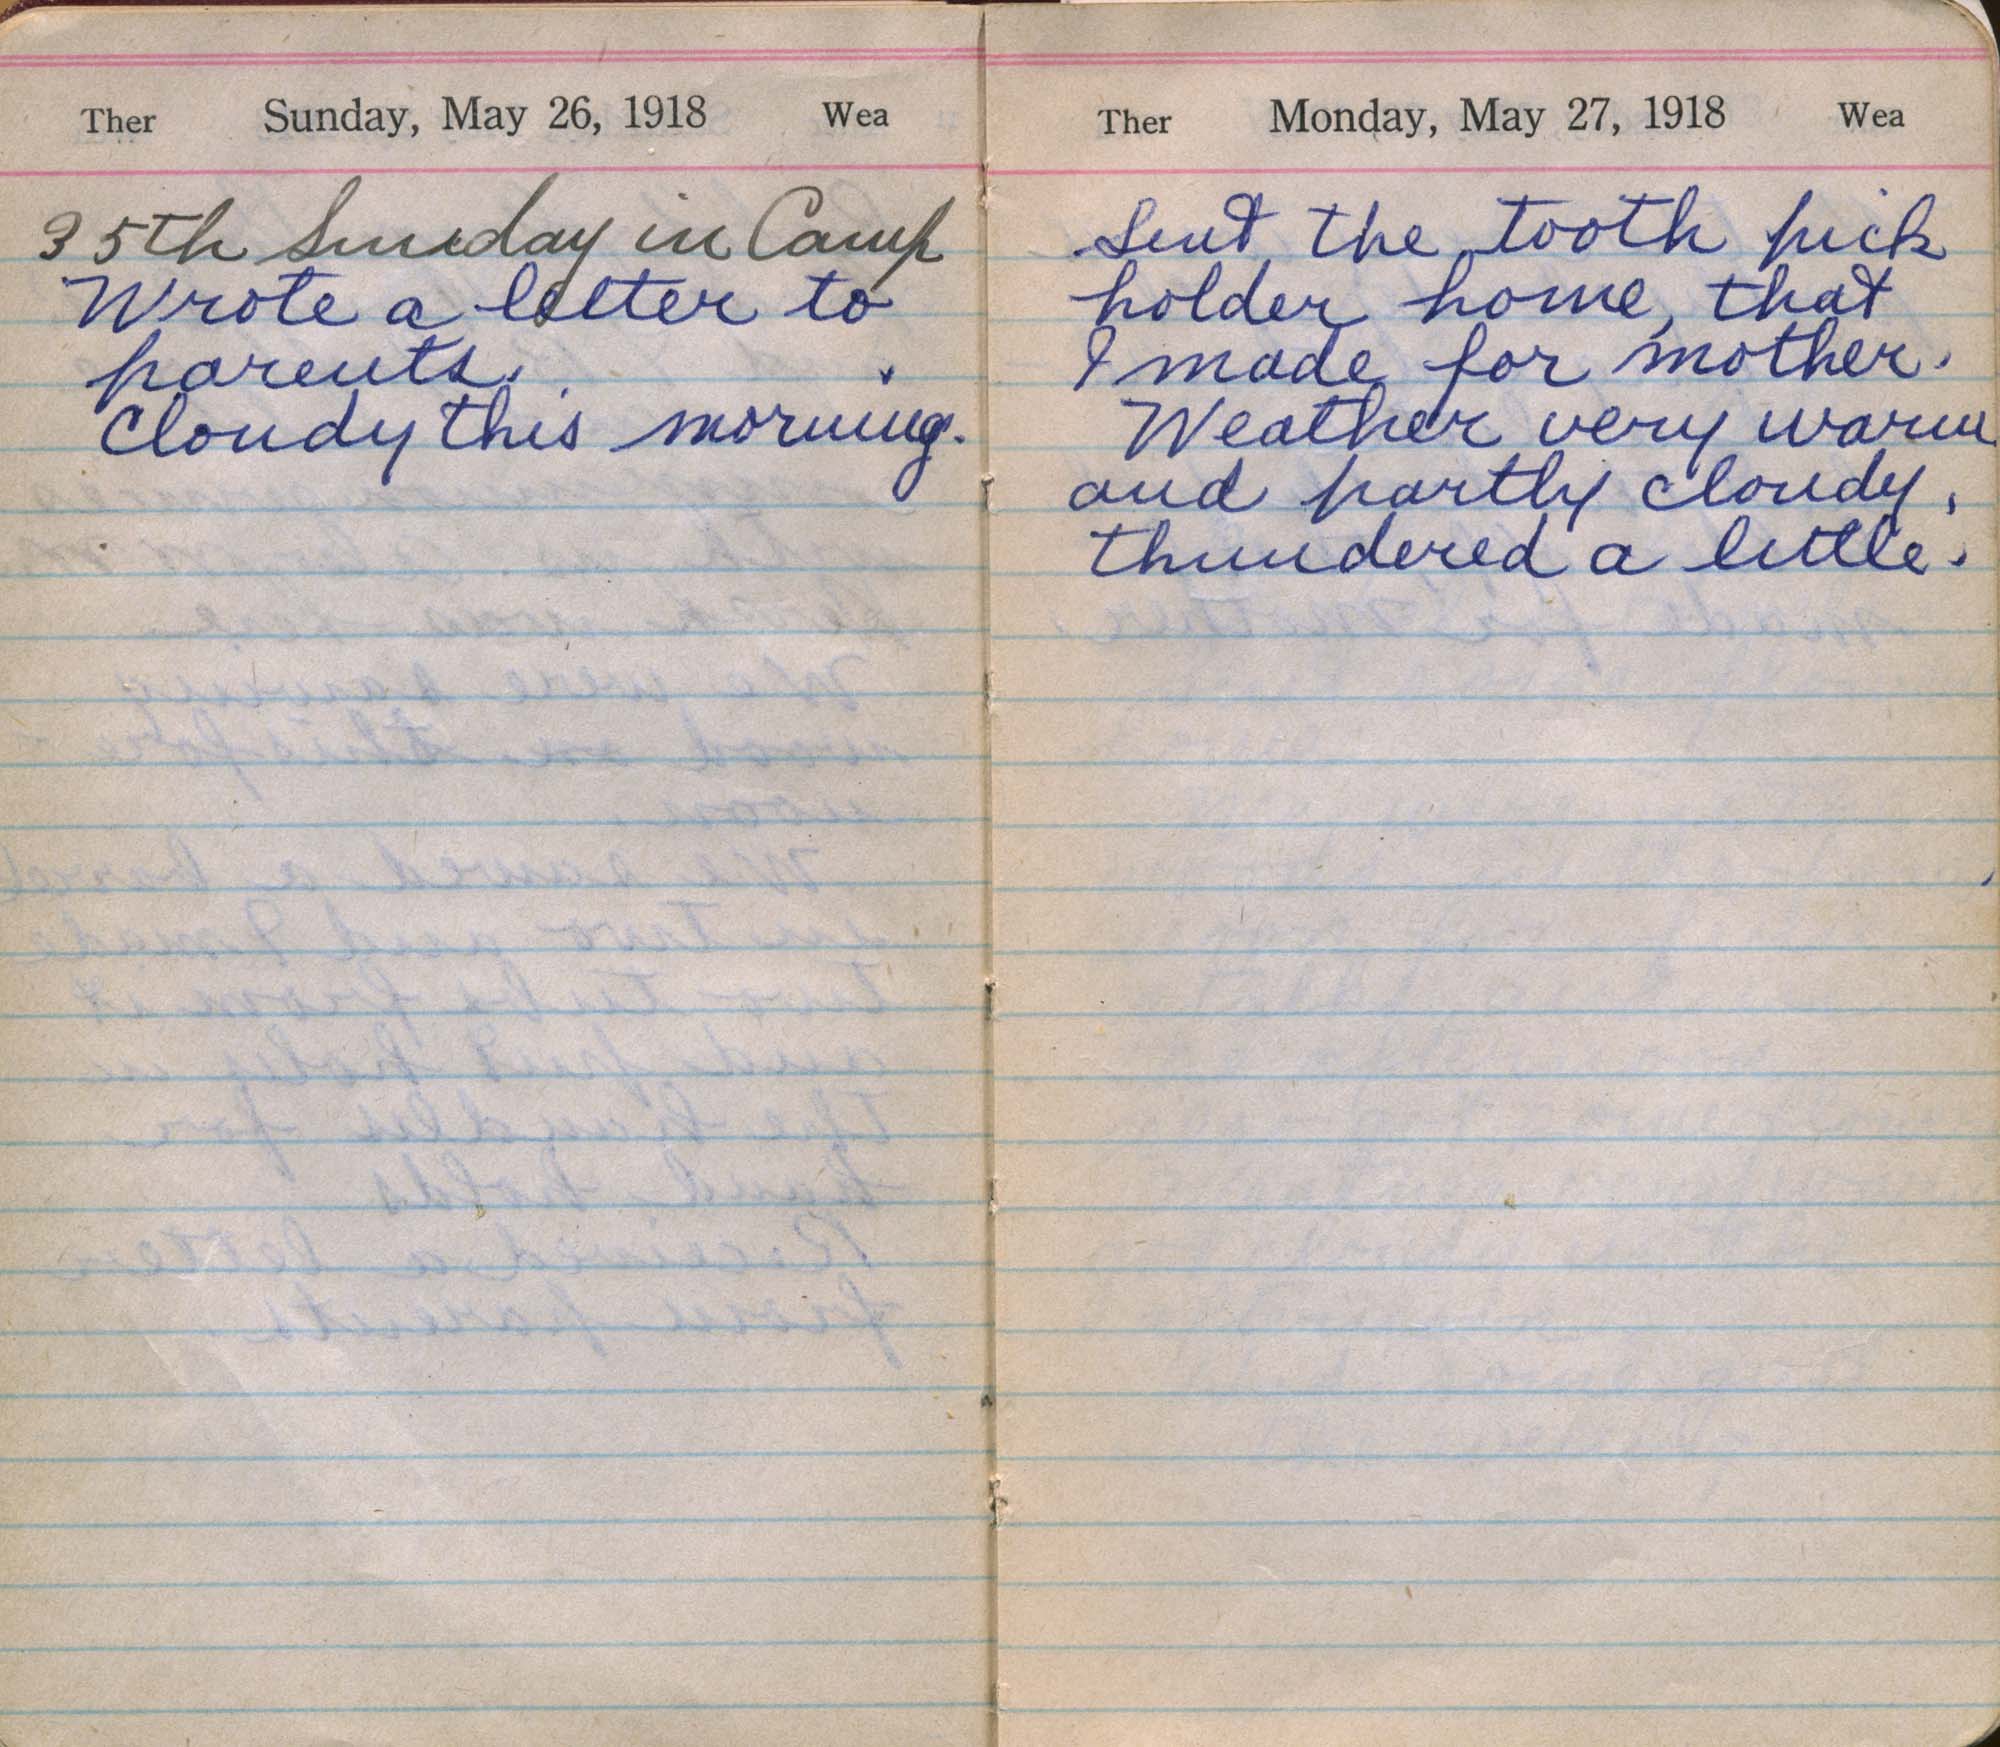 Ther Sunday, May 26, 1918 Wea
35th Sunday in Camp
Wrote a letter to
parents.
Cloudy this morning.
Ther Monday, May 27, 1918 Wea
Sent the tooth pick
holder home, that
I made for mother.
Weather very warm
and partly cloudy,
thundered a little.